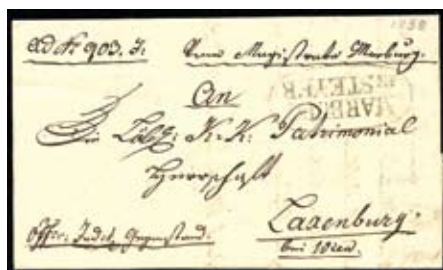 1838
ad N 903. J. Vom Magistrate Marburg.
MARB:
STEYER
An
Die Löbl: K: K: Patrimonial
Herrschaft
Laxenburg.
bei Wien.
Offic: Judic: Gegenstand.